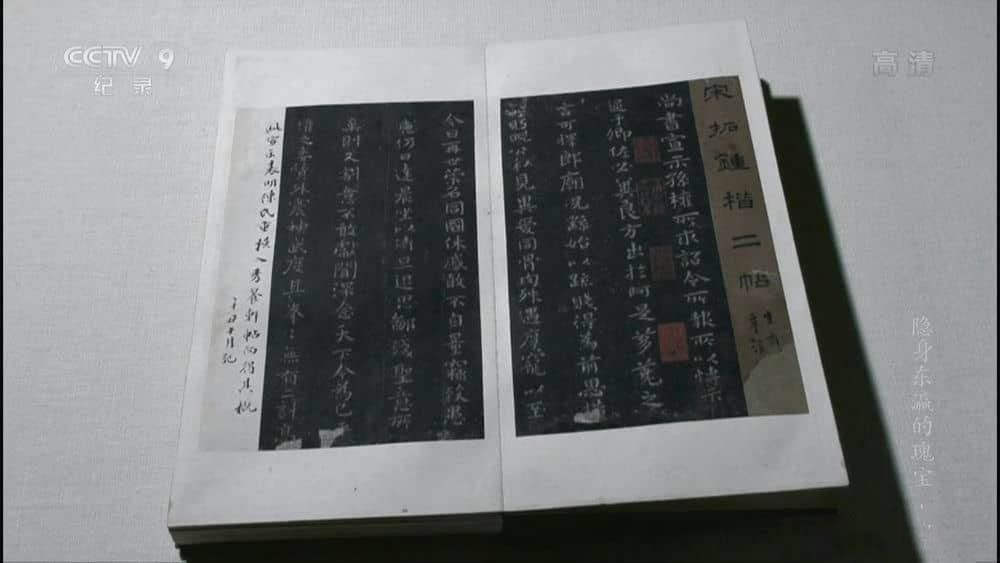 CCTV 9
纪录
高清
宋拓鍾楷二帖
尚書宣示孫權所求詔令所報所以博示
逮于卿佐必冀良方出於阿是芻蕘之
言可擇郎廟況繇始以疏賤得為前恩
盼睨公私見異愛同骨肉殊遇厚寵以至
今日再世榮名同國休慼敢不自量竊致愚
慮仍日達晨坐以待旦退思鄙淺聖意所
棄則又割意不敢獻聞深念天下今為已
權之委質外震神武度其拳拳無有二計高
此宣示表明陳氏重橅入秀餐軒帖尚得其概
十月記
隐身东瀛的瑰宝